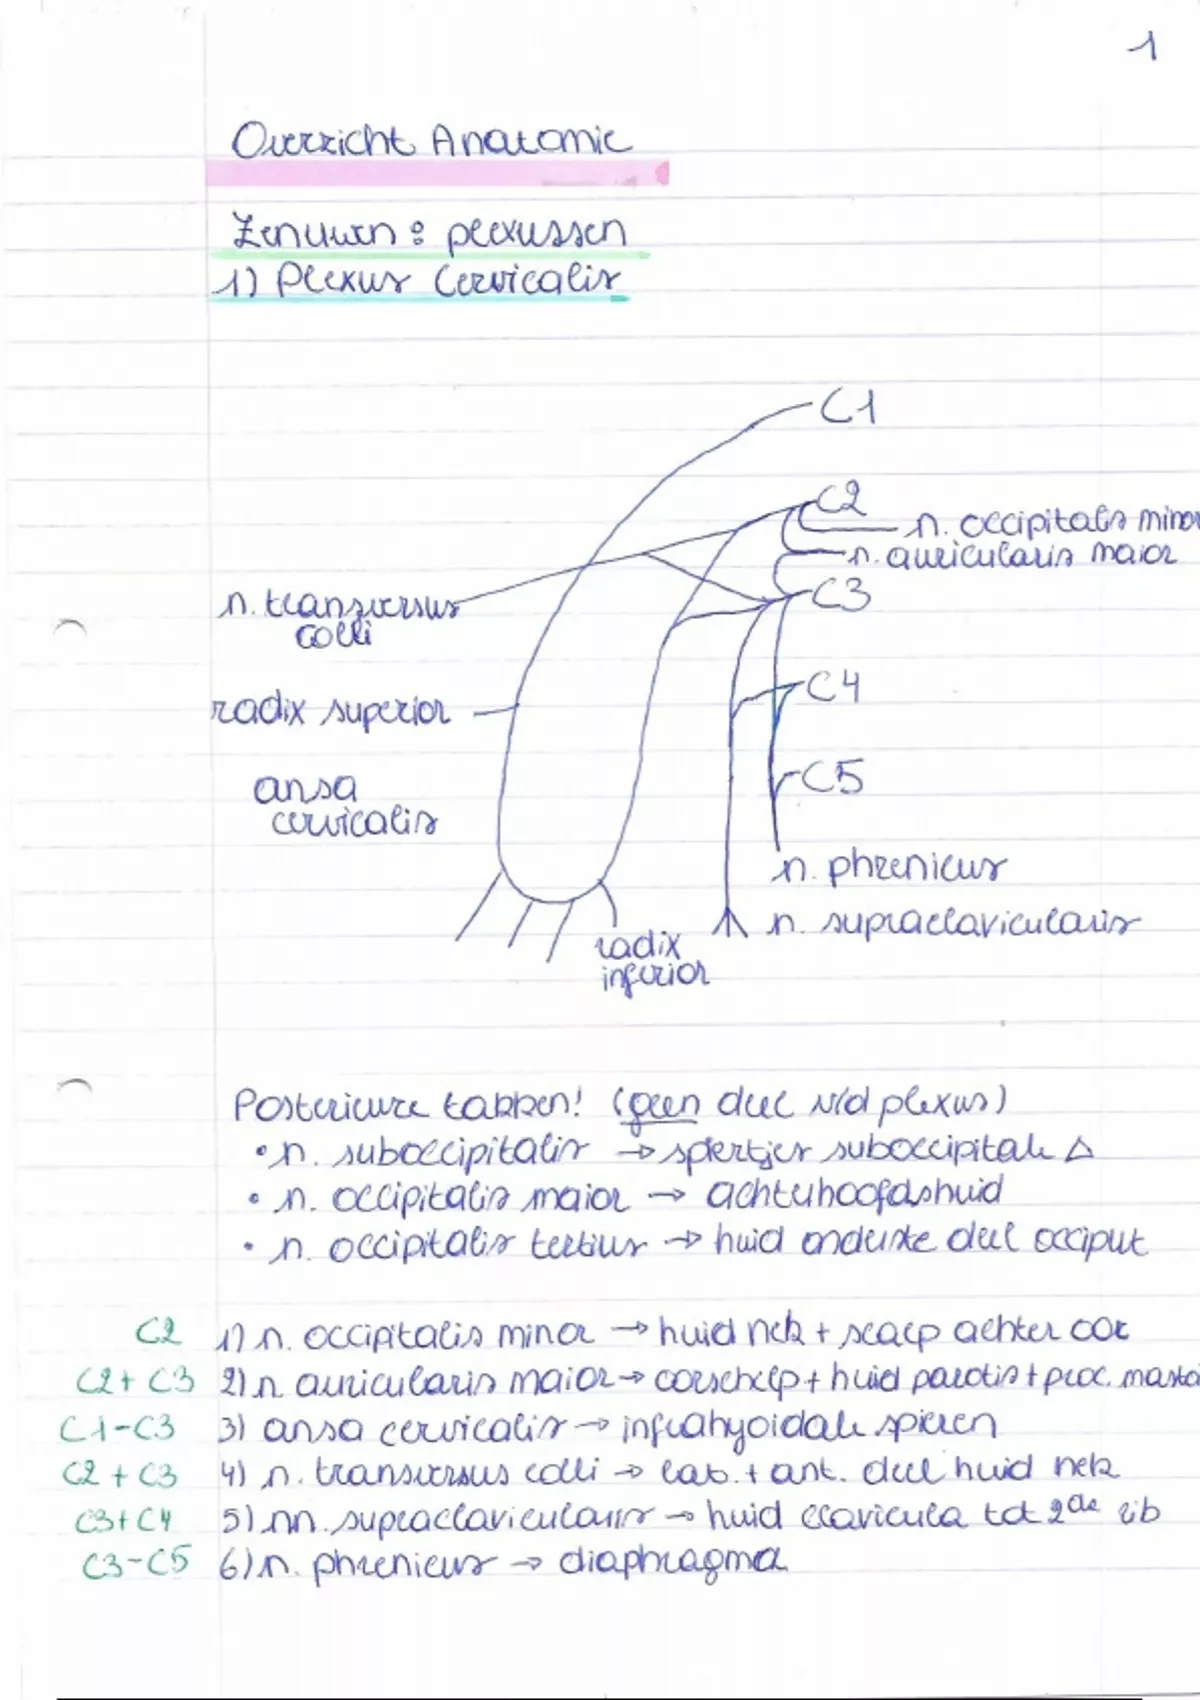 1
Overzicht Anatomie
Zenuwen: plexussen
1) Plexus Cervicalis
C1
C2
n. occipitalis minor
n. auricularis maior
C3
n. transversus
colli
C4
radix superior
C5
ansa
cervicalis
n. phrenicus
n. supraclavicularis
radix
inferior
Posterieure takken! (geen deel v/d plexus)
• n. suboccipitalis → spiertjes suboccipitale Δ
• n. occipitalis maior → achterhoofdshuid
• n. occipitalis tertius → huid onderste deel occiput
C2 1) n. occipitalis minor → huid nek + scalp achter oor
C2 + C3 2) n. auricularis maior → oorschelp + huid parotis + proc. masto
C1-C3 3) ansa cervicalis → infrahyoidale spieren
C2 + C3 4) n. transversus colli → lat. + ant. deel huid nek
C3+C4 5) nn. supraclavicularis → huid clavicula tot 2de rib
C3-C5 6) n. phrenicus → diaphragma